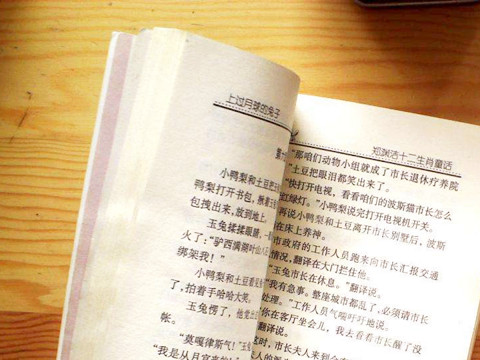 上过月球的兔子
第十
小鸭梨和土豆把玉
鸭梨打开书包，瞅着玉
包拽出来，放到地上。
玉兔揉揉眼睛，一
火了：“驴西满腮叶山人
绑架我！”
小鸭梨和土豆看
了，拍着手哈哈大笑。
玉兔愣了，他觉
帐。
“莫嘎律斯气！”玉
“我是从月宫来的
郑渊洁十二生肖童话
“那咱们动物小组就成了市长退休疗养院
”土豆把眼泪都笑出来了。
“快打开电视，看看咱们的波斯猫市长怎么
红绿灯。”小鸭梨说完打开电视机开关。
再说小鸭梨和土豆离开市长别墅后，波斯
在床上养神。
市政府的工作人员跑来向市长汇报交通
情况，翻译在大门拦住他。
“玉兔市长在休息。”翻译说。
“我有急事。整座城市都乱了，必须请市长
处理。”工作人员气喘吁吁地说。
“你在客厅坐会儿，我去看看市长醒了没
时，市长夫人来到会